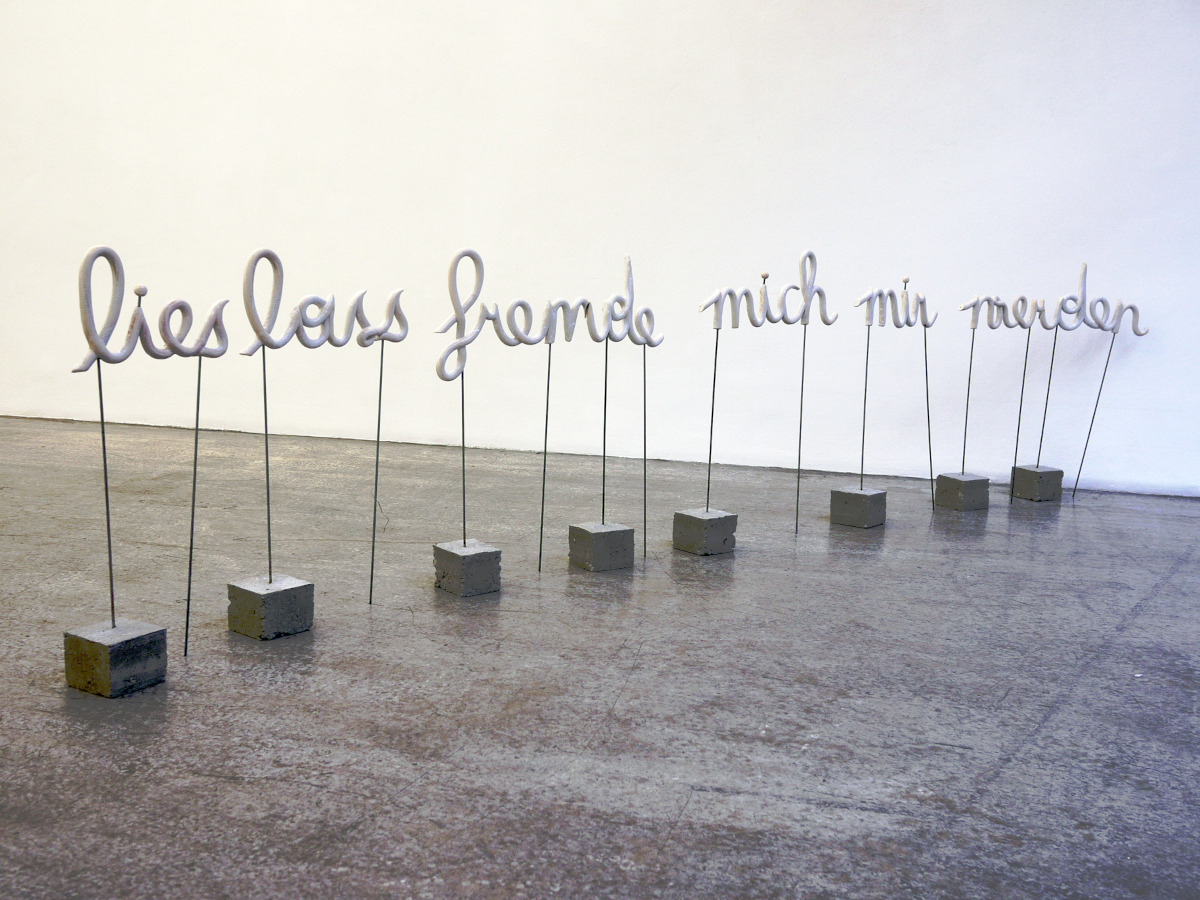 lies lass fremde mich mir werden